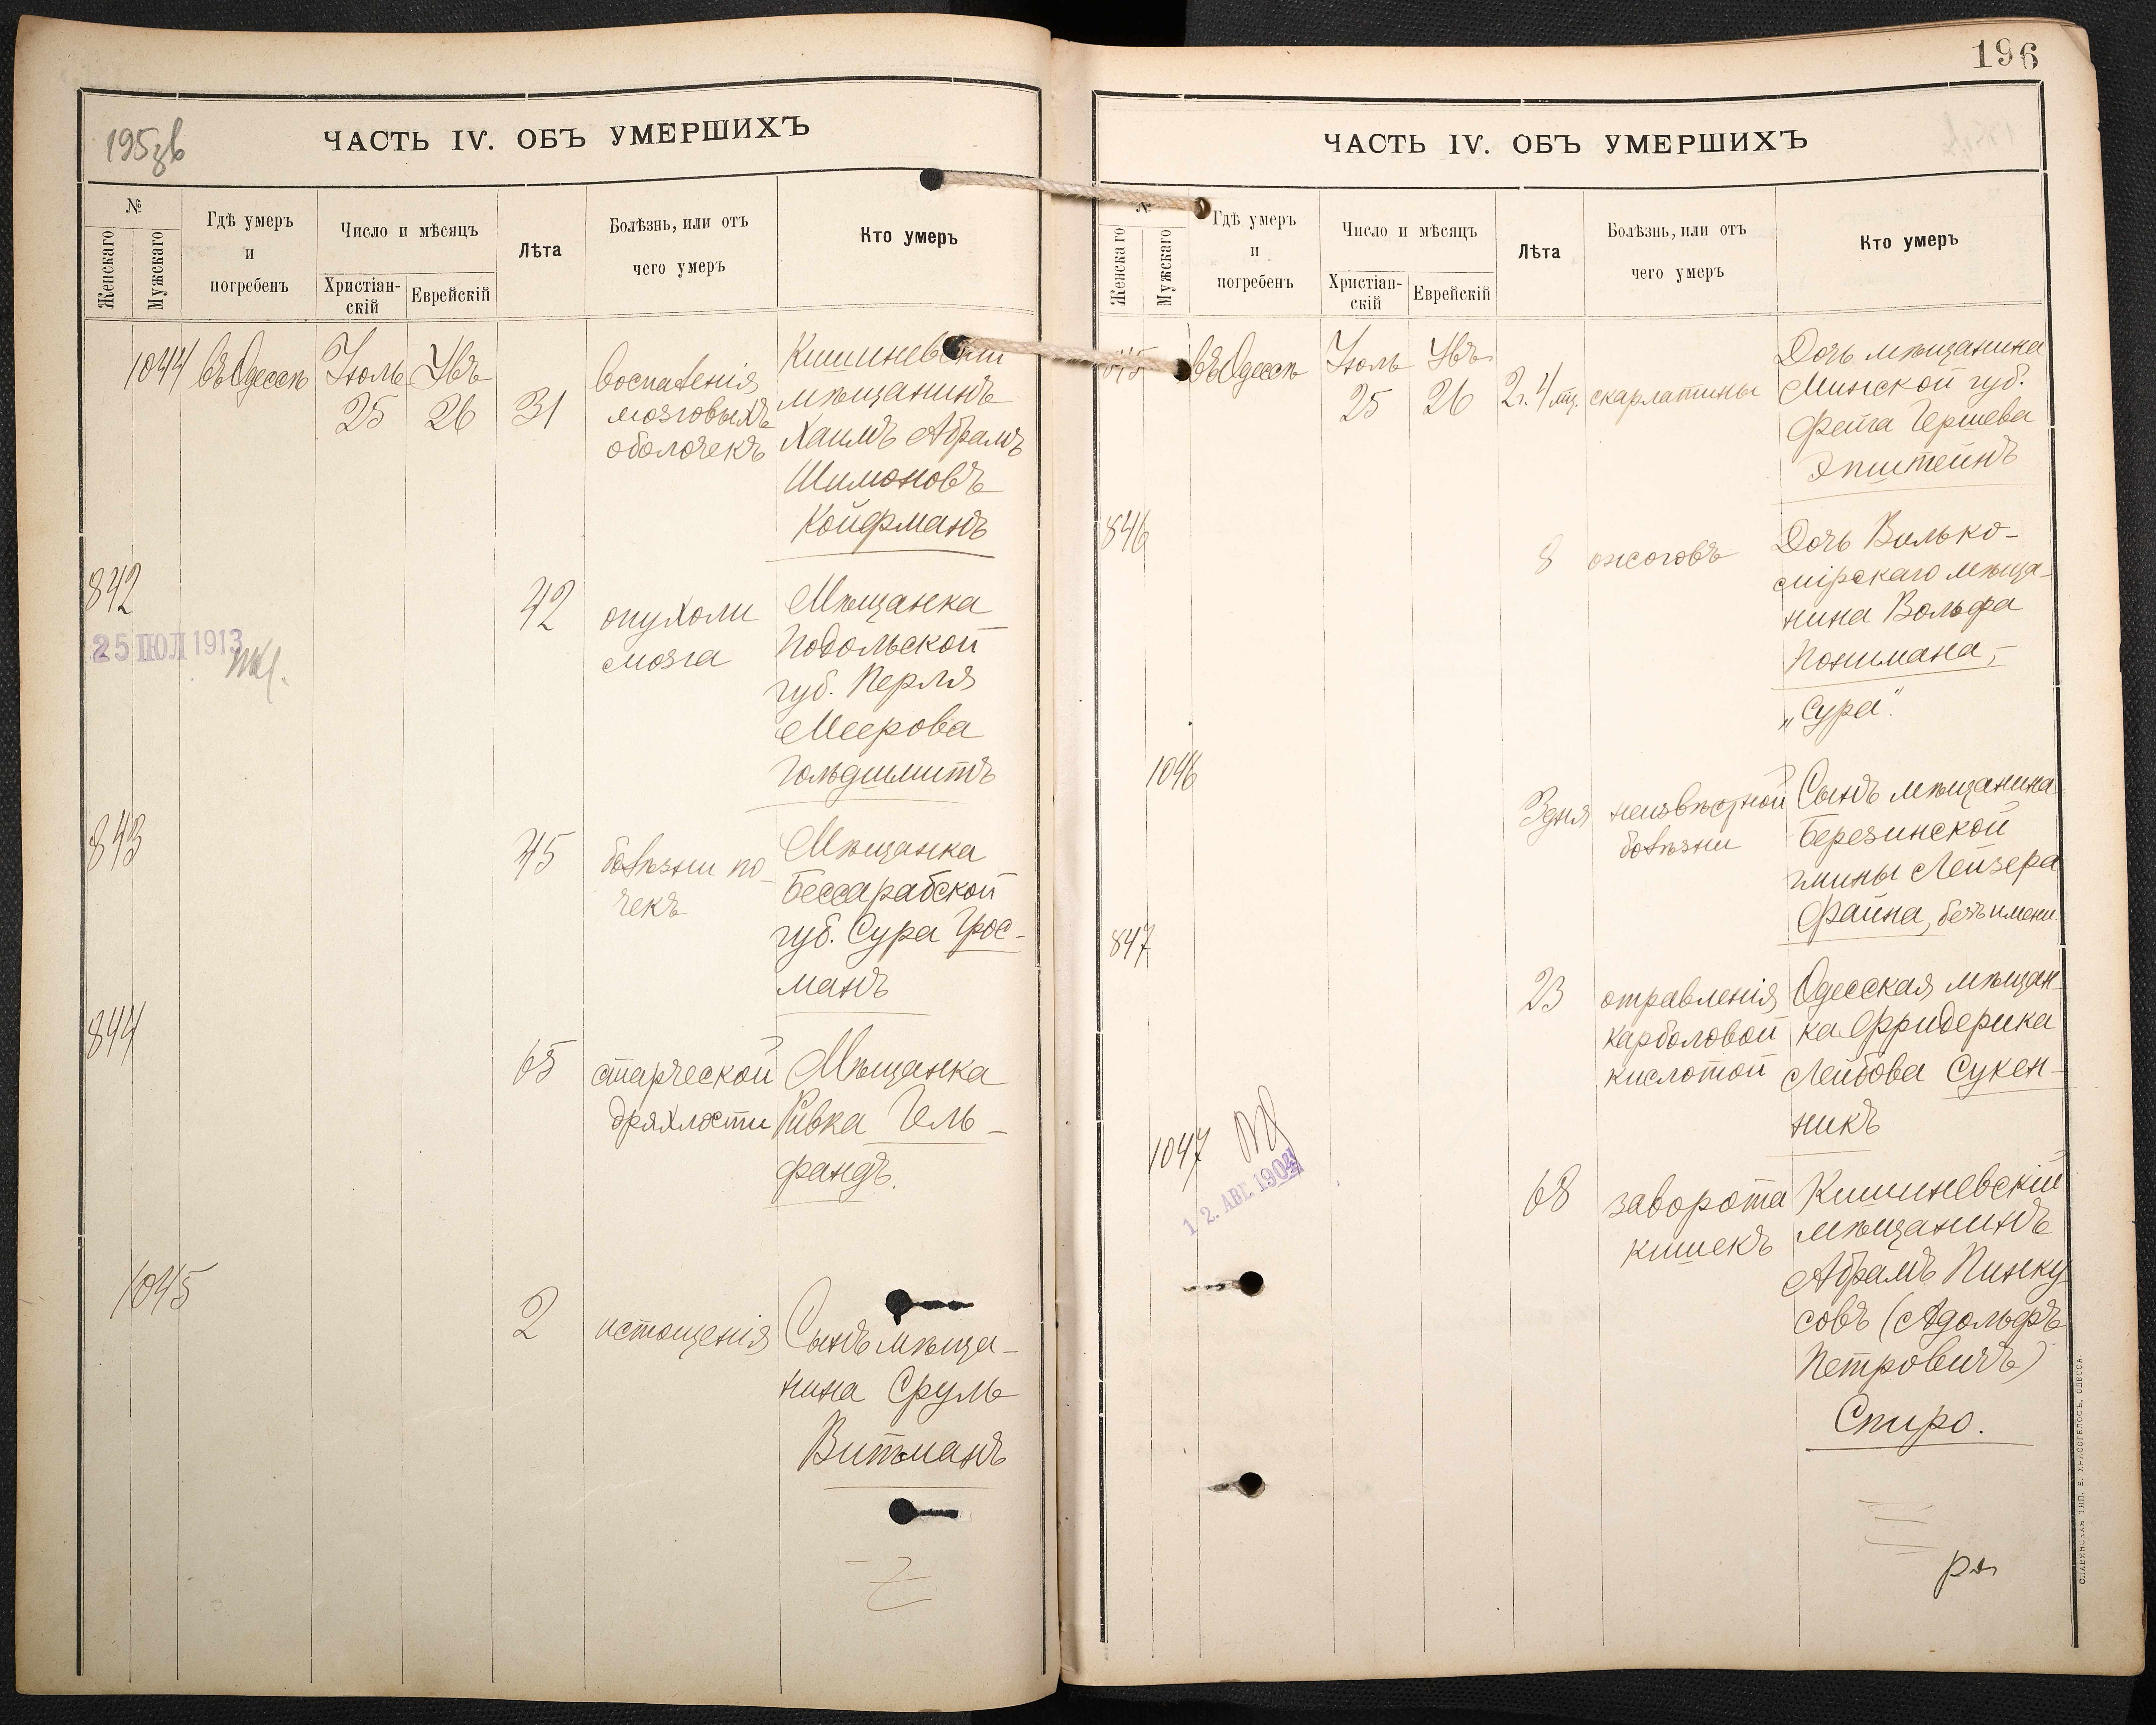 195зв
ЧАСТЬ IV. ОБЪ УМЕРШИХЪ
№
Женскаго
Мужскаго
Гдѣ умеръ
и
погребенъ
Число и мѣсяцъ
Христіан-
скій
Еврейскій
Лѣта
Болѣзнь, или отъ
чего умеръ
Кто умеръ
1044 въ Одессѣ Іюль 25 Увъ 26 31
воспаленія
мозговыхъ
оболочекъ
Кишиневскій
мѣщанинъ
Хаимъ Абрамъ
Шимоновъ
Койфманъ
842
25 ІЮЛ 1913
42
опухоли
мозга
Мѣщанка
Подольской
губ. Перля
Меерова
Гольдшмитъ
843
45
болѣзни по-
чекъ
Мѣщанка
Бессарабской
губ. Сура Грос-
манъ
844
65
старческой
дряхлости
Мѣщанка
Ривка Гель-
фандъ.
1045
2
истощенія
Сынъ мѣща-
нина Сруль
Витманъ
196
ЧАСТЬ IV. ОБЪ УМЕРШИХЪ
№
Женскаго
Мужскаго
Гдѣ умеръ
и
погребенъ
Число и мѣсяцъ
Христіан-
скій
Еврейскій
Лѣта
Болѣзнь, или отъ
чего умеръ
Кто умеръ
845 въ Одессѣ Іюль 25 Увъ 26 2г. 4 мц. скарлатины
Дочь мѣщанина
Минской губ.
Фейга Гершева
Эпштейнъ
846
8
ожоговъ
Дочь Вилько-
мірскаго мѣща-
нина Вольфа
Понимана,-
„Сура".
1046
3 дня
неизвѣстной
болѣзни
Сынъ мѣщанина
Березинской
гмины Лейзера
Файна, безъ имени
847
23
отравленія
карболовой
кислотой
Одесская мѣщан-
ка Фридерика
Лейбова Сукен-
никъ
1047
12. АВГ. 1904
68
заворота
кишекъ
Кишиневскій
мѣщанинъ
Абрамъ Пинку
совъ (Адольфъ
Петровичъ)
Спиро.
СЛАВЯНСКАЯ ТИП. Е. ХРИСОГЕЛОСЪ, ОДЕССА.